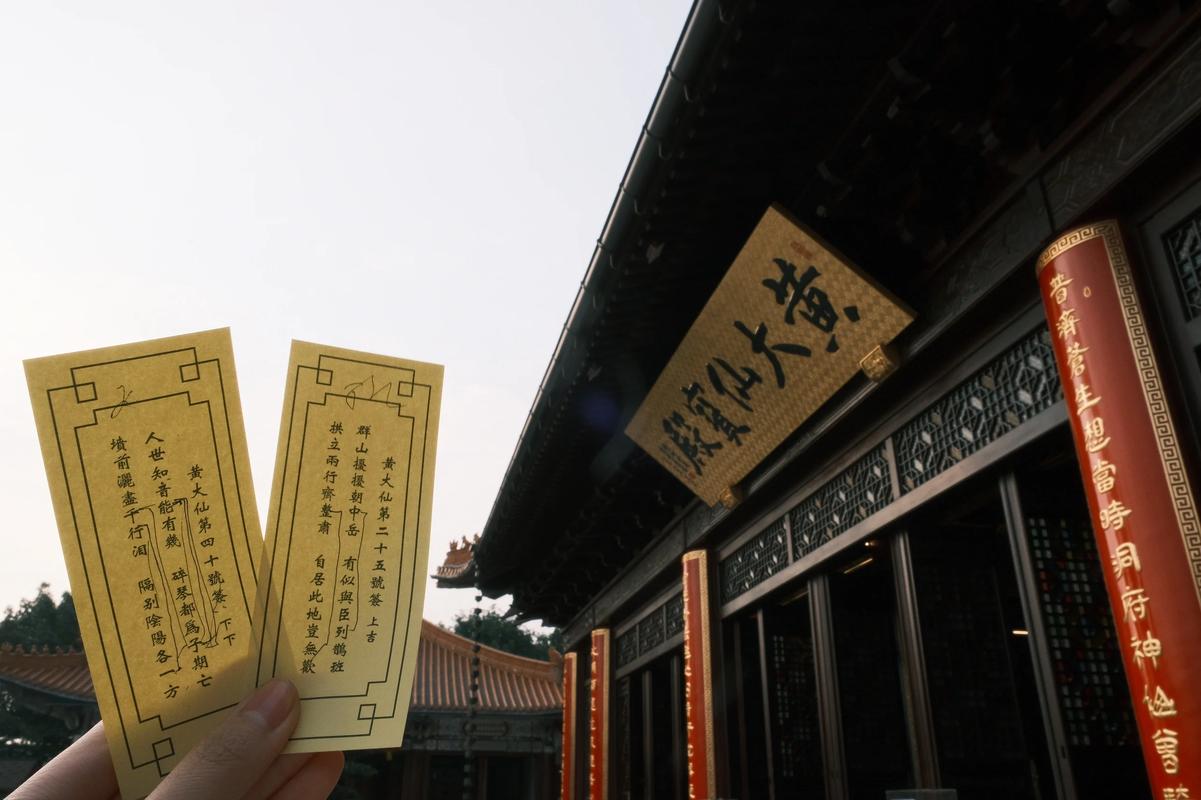 黃大仙第四十號簽 下下
人世知音能有幾 碎琴都為子期亡
墳前灑盡千行淚 隔別陰陽各一方
黃大仙第二十五號簽 上吉
群山擾擾朝中岳 有似與臣列鵲班
拱立兩行齊整肅 自居此地豈無歡
黃大仙寶殿
普濟蒼生想當時洞府神仙曾